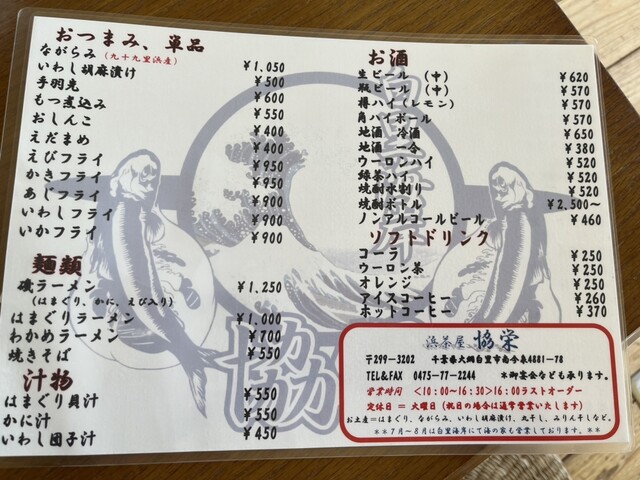 おつまみ、単品
ながらみ(九十九里浜産) ¥1,050
いわし胡麻漬け ¥500
手羽先 ¥600
もつ煮込み ¥550
おしんこ ¥400
えだまめ ¥400
えびフライ ¥950
かきフライ ¥950
あじフライ ¥900
いわしフライ ¥900
いかフライ ¥900
麺類
磯ラーメン ¥1,250
(はまぐり、かに、えび入り)
はまぐりラーメン ¥1,000
わかめラーメン ¥700
焼きそば ¥550
汁物
はまぐり貝汁 ¥550
かに汁 ¥550
いわし団子汁 ¥450
お酒
生ビール (中) ¥620
瓶ビール (中) ¥570
樽ハイ(レモン) ¥570
角ハイボール ¥570
地酒 冷酒 ¥650
地酒 一合 ¥380
ウーロンハイ ¥520
緑茶ハイ ¥520
焼酎水割り ¥520
焼酎ボトル ¥2,500~
ノンアルコールビール ¥460
ソフトドリンク
コーラ ¥250
ウーロン茶 ¥250
オレンジ ¥250
アイスコーヒー ¥260
ホットコーヒー ¥370
浜茶屋 協栄
〒299-3202 千葉県大網白里市南今泉4881-78
TEL&FAX 0475-77-2244 *御宴会なども承ります。
営業時間 <10:00~16:30>16:00ラストオーダー
定休日 = 火曜日(祝日の場合は通常営業いたします)
お土産=はまぐり、ながらみ、いわし胡麻漬、丸干し、みりん干しなど。
**7月~8月は白里海岸にて海の家も営業しております。**
協